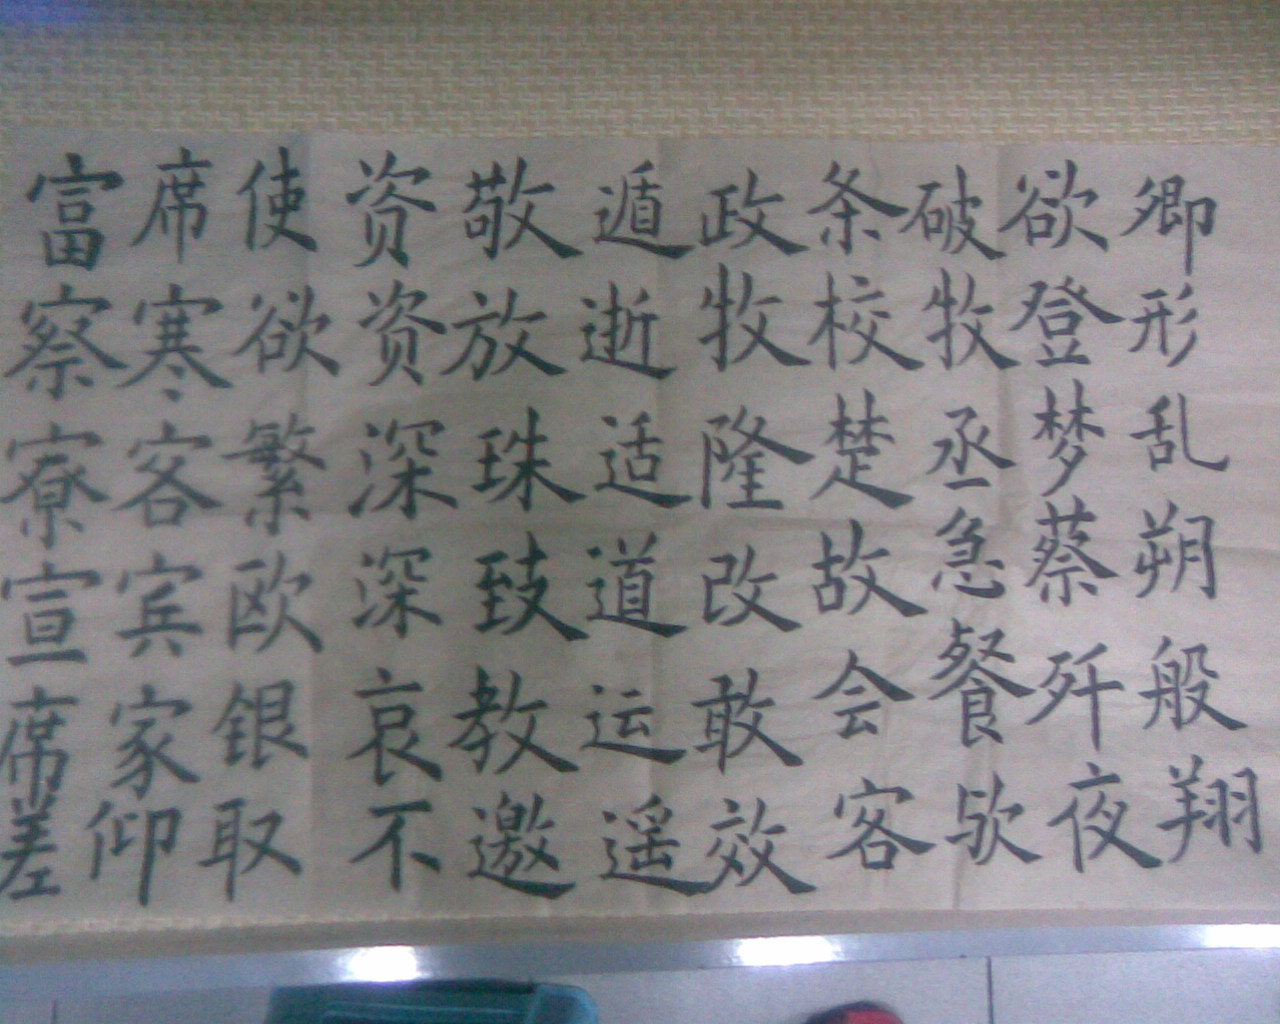 卿形乱朔般翔
欲登梦蔡歼夜
破牧丞急餐欤
条校楚故会客
政牧隆改敢效
遁逝适道运遥
敬放珠致教邀
资资深深哀不
使欲繁欧银取
席寒客宾家仰
富察寮宣席差